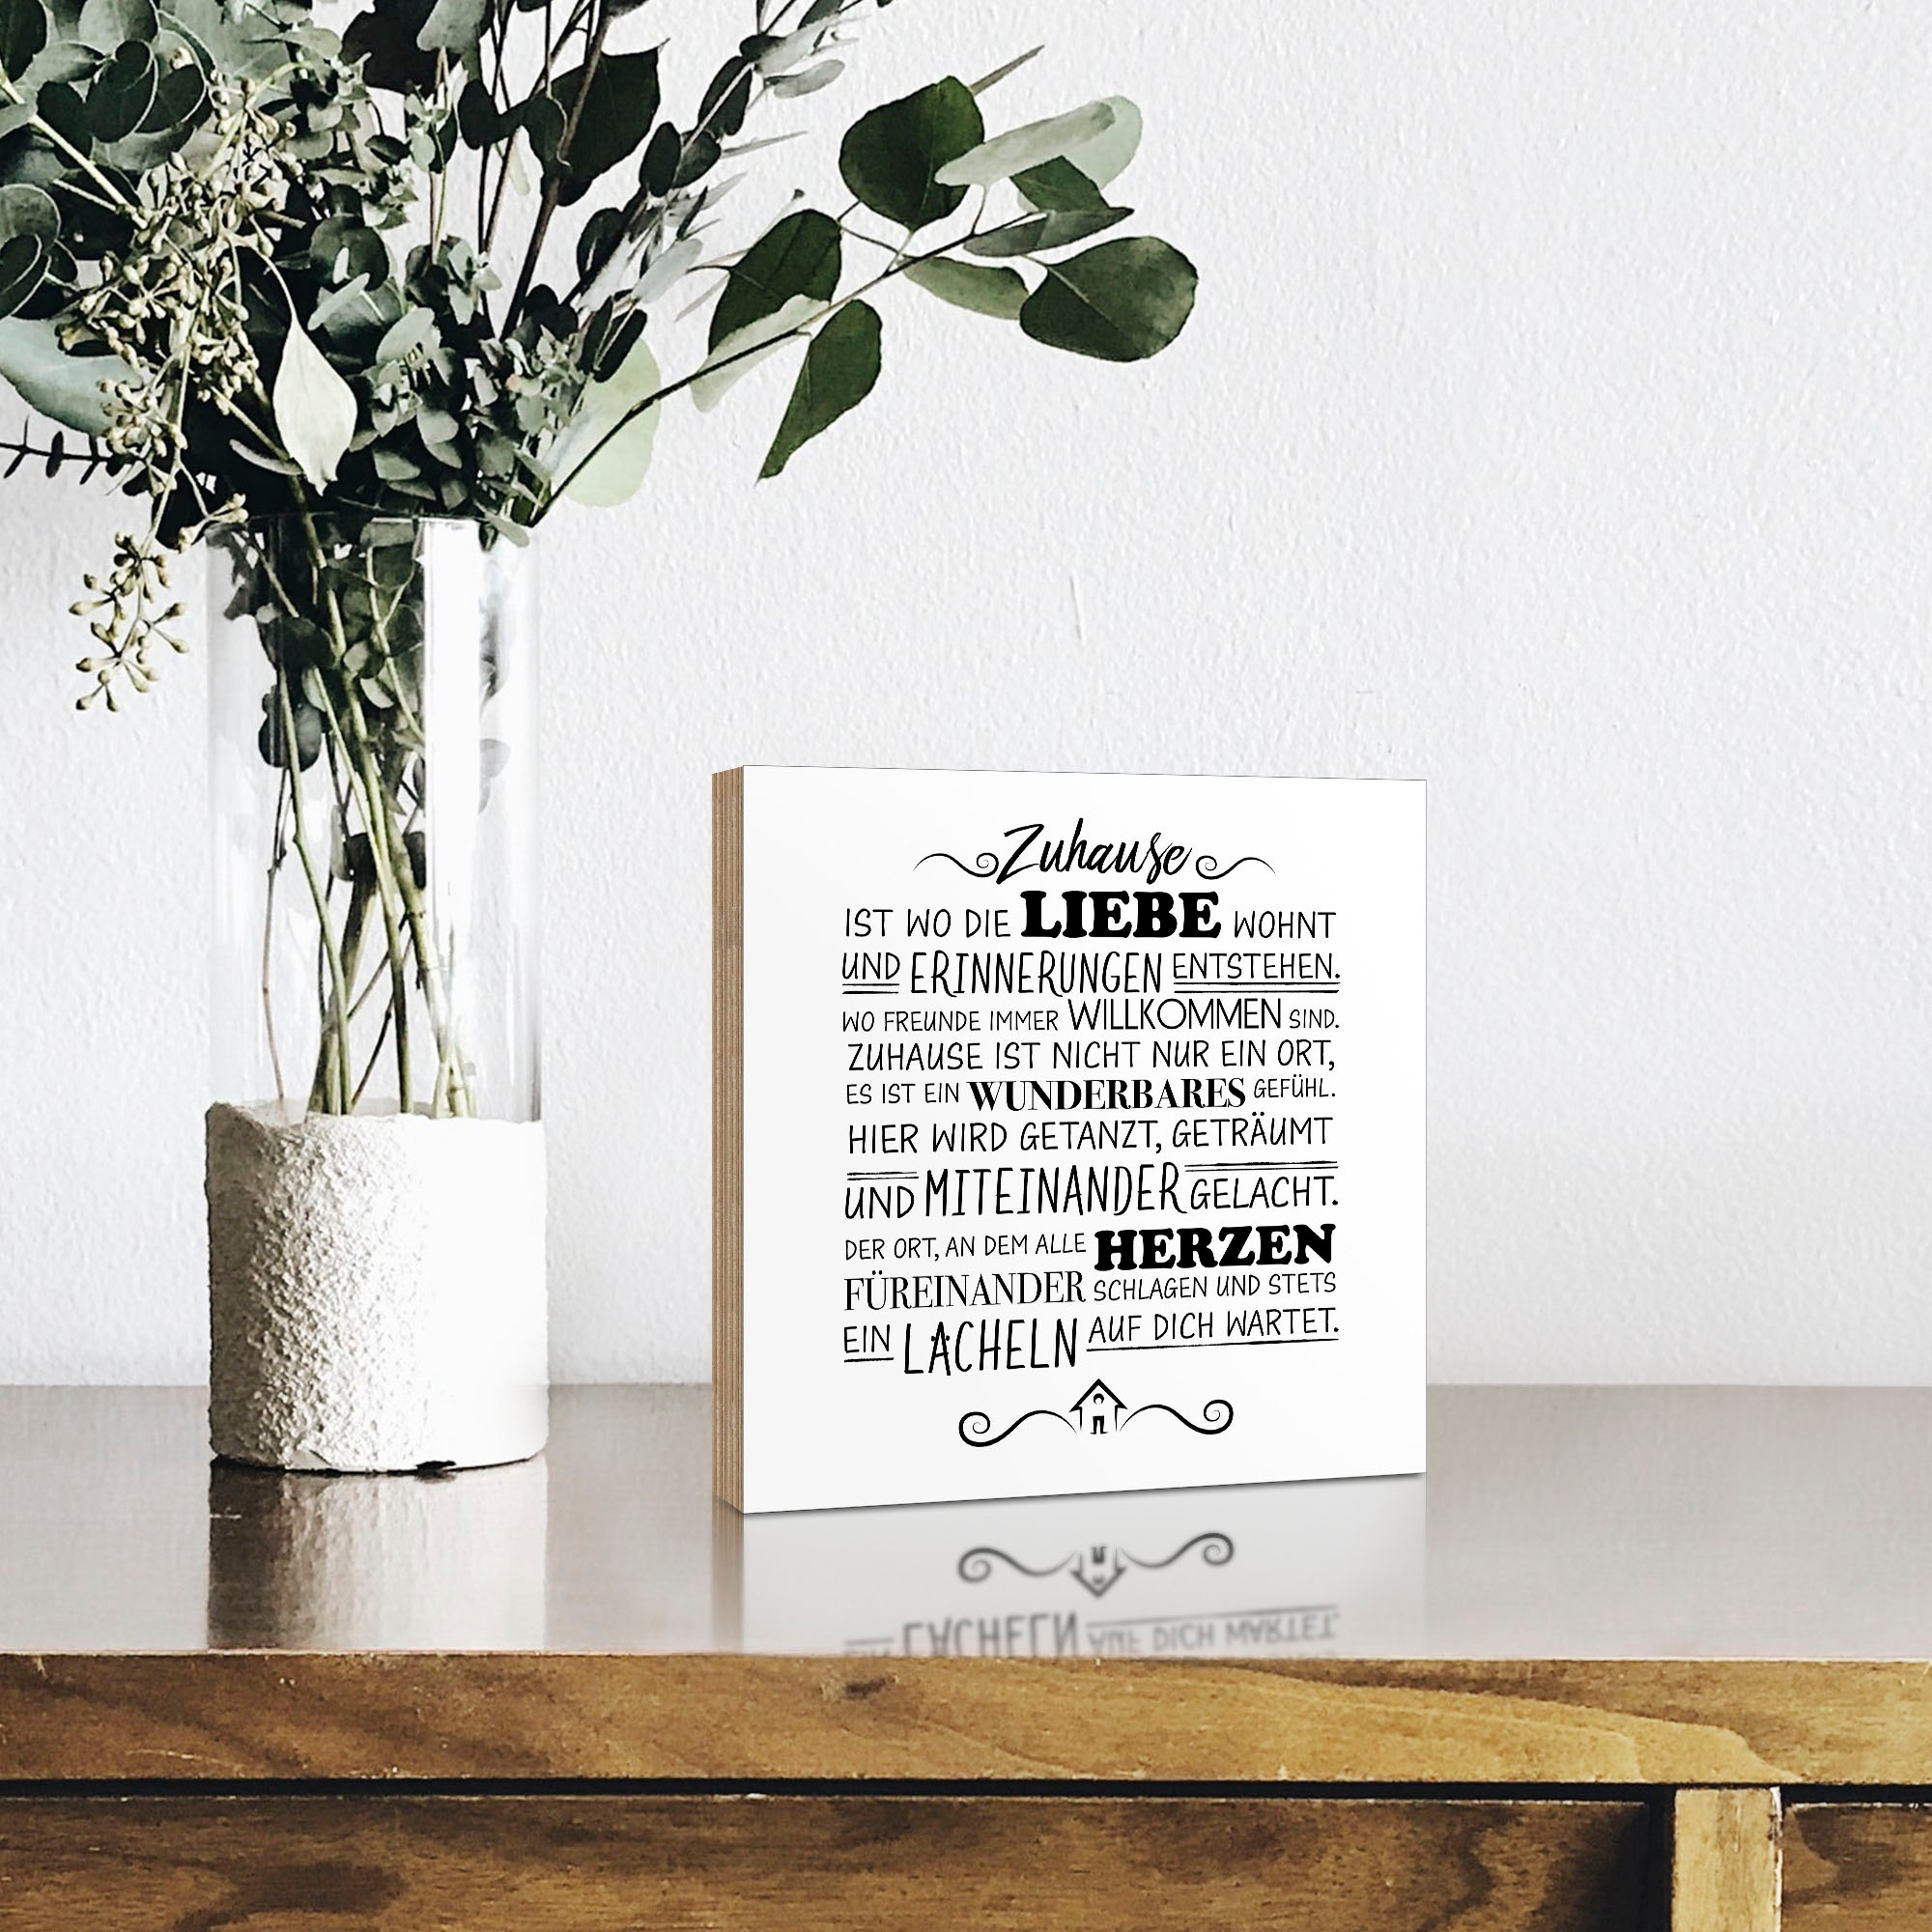 Zuhause
IST WO DIE LIEBE WOHNT
UND ERINNERUNGEN ENTSTEHEN.
WO FREUNDE IMMER WILLKOMMEN SIND.
ZUHAUSE IST NICHT NUR EIN ORT,
ES IST EIN WUNDERBARES GEFÜHL.
HIER WIRD GETANZT, GETRÄUMT
UND MITEINANDER GELACHT.
DER ORT, AN DEM ALLE HERZEN
FÜREINANDER SCHLAGEN UND STETS
EIN LÄCHELN AUF DICH WARTET.